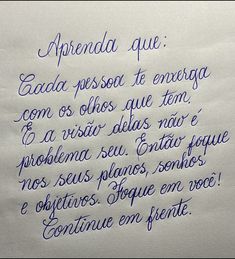 Aprenda que:
Cada pessoa te enxerga
com os olhos que tem.
E a visão delas não é
problema seu. Então foque
nos seus planos, sonhos
e objetivos. Foque em você!
Continue em frente.